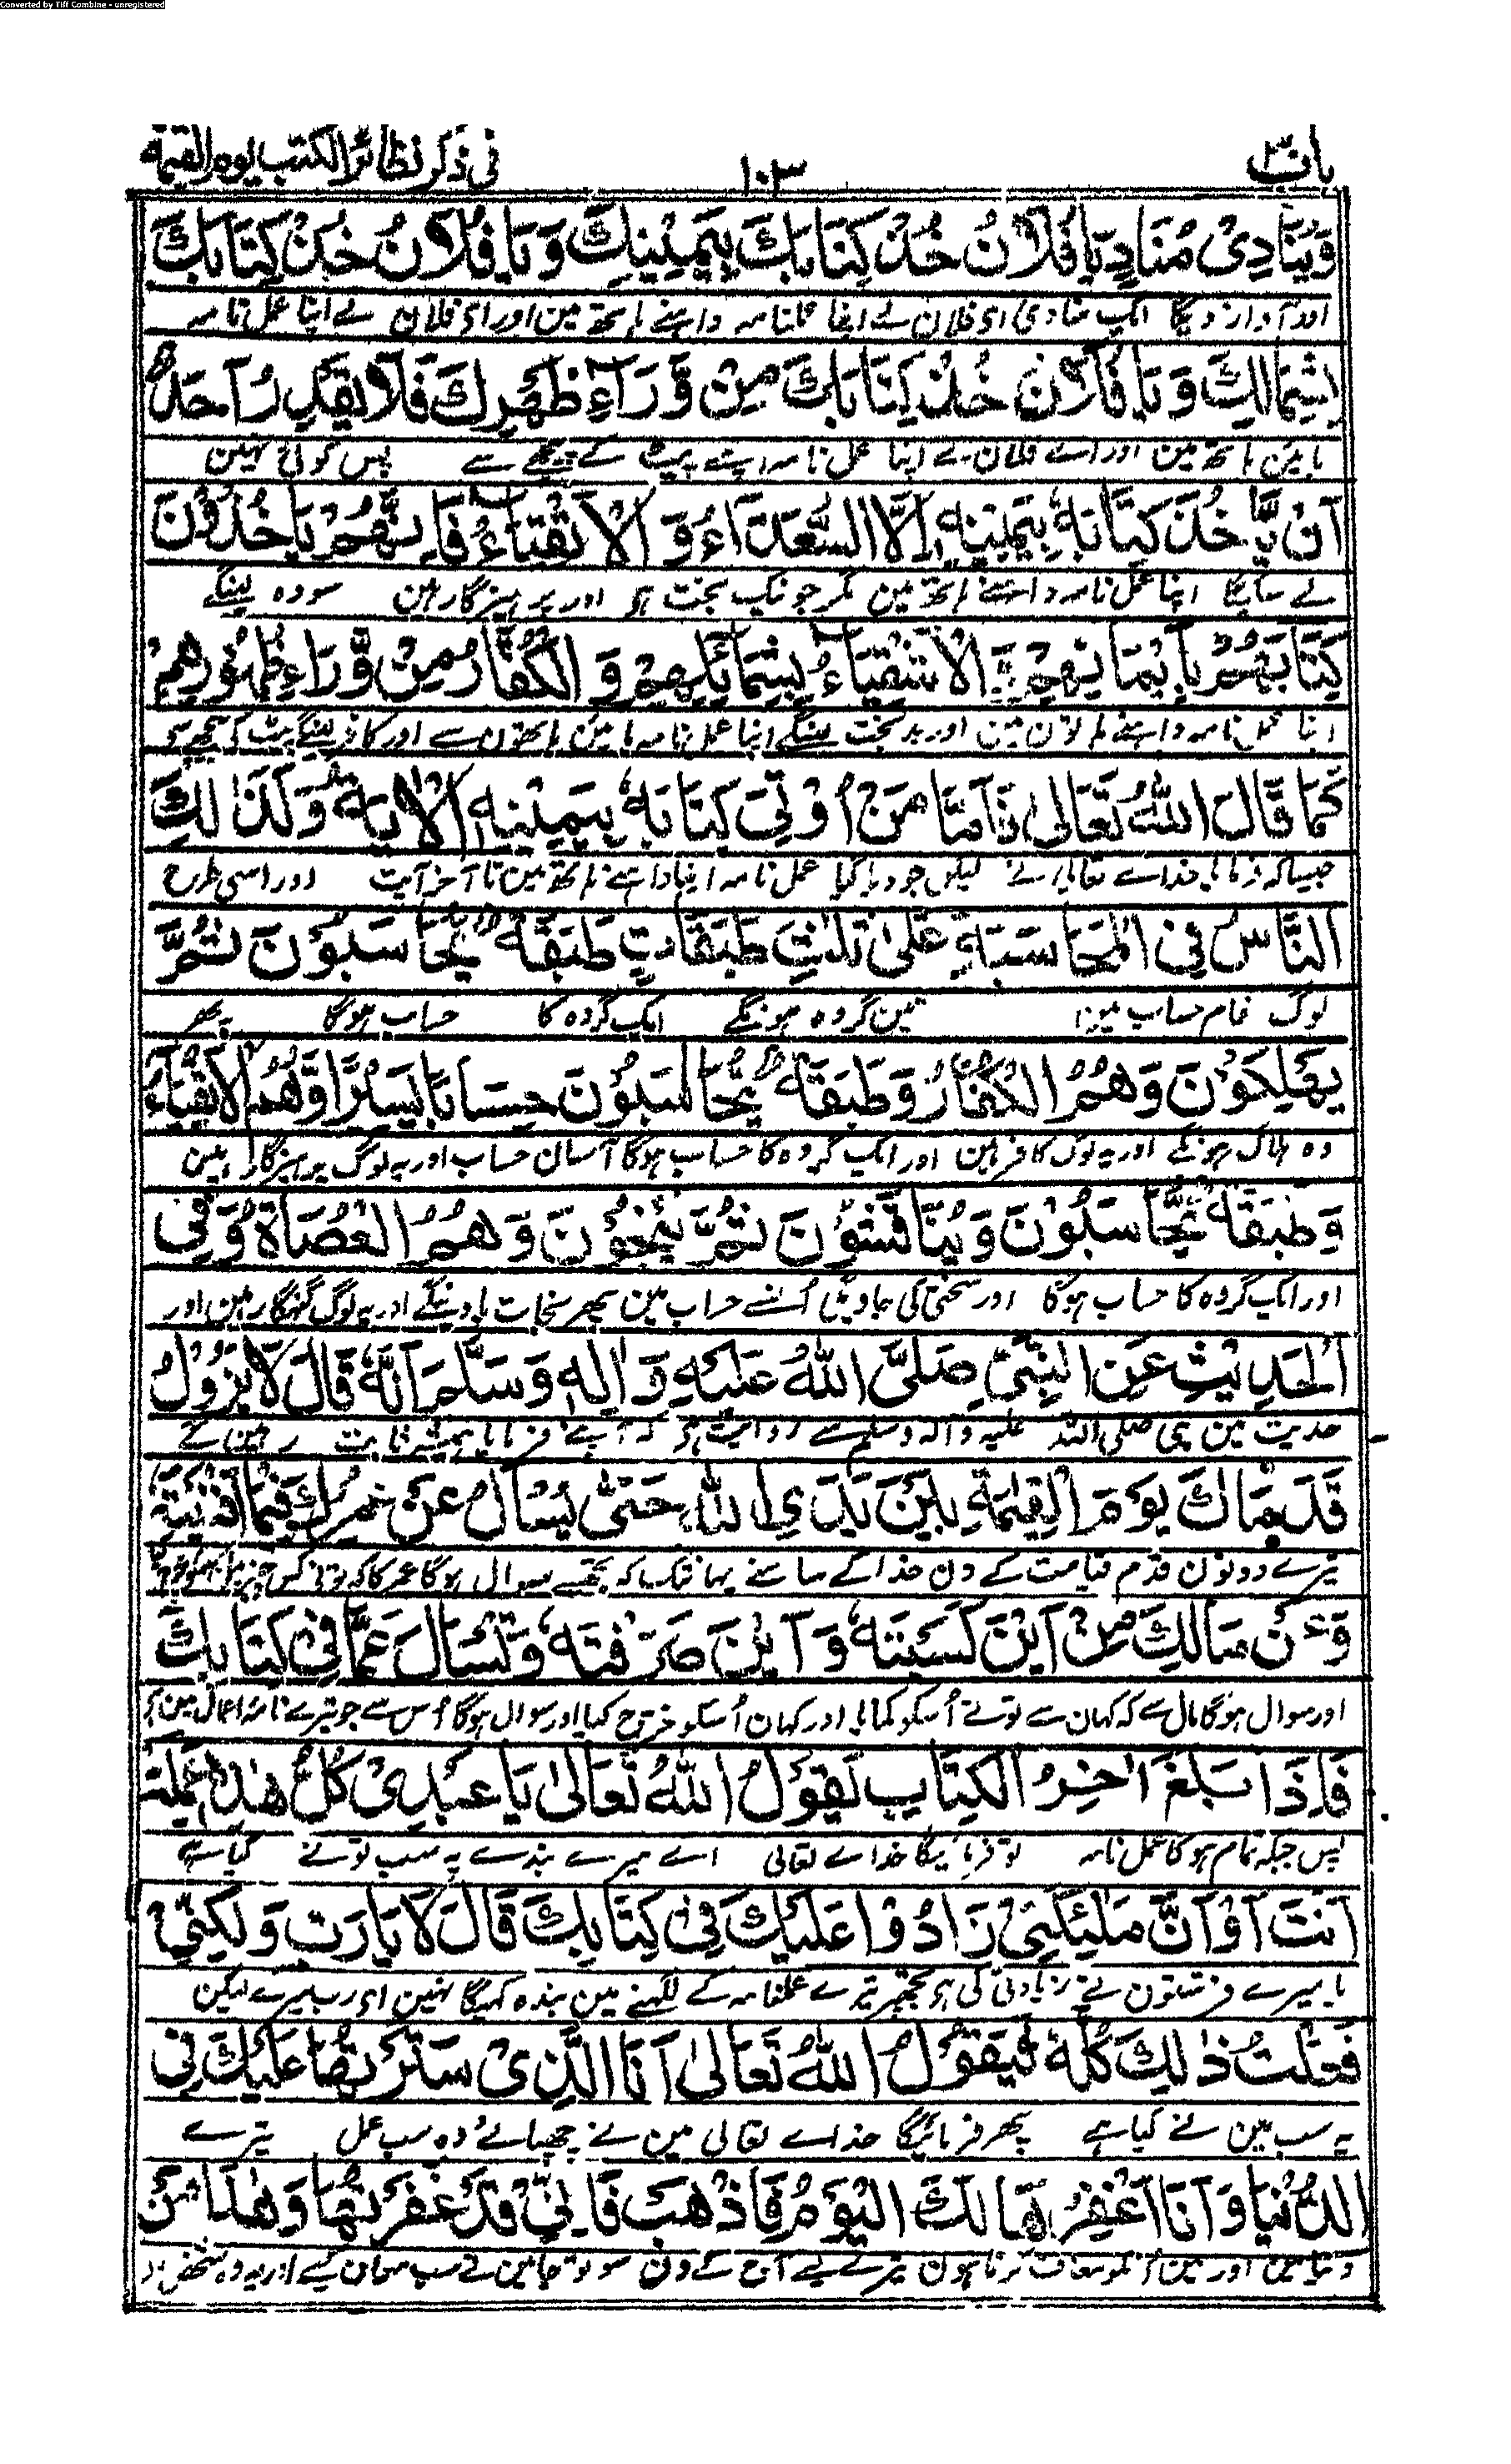 Converted by Tiff Combine - unregistered
باب ۳۰ ۱۰۳ فى ذكر نظائر الكتب يوم القيمة
وَيُنَادِىْ مُنَادٍ يَا فُلَانُ خُذْ كِتَابَكَ بِيَمِيْنِكَ وَيَا فُلَانُ خُذْ كِتَابَكَ
اور آواز دیگا ایک منادی ای فلان لے اپنا عملنامہ داہنے ہاتھ مین اور ای فلان لے اپنا عمل نامہ
بِشِمَالِكَ وَيَا فُلَانُ خُذْ كِتَابَكَ مِنْ وَّرَآءِ ظَهْرِكَ فَلَا يَقْدِرُ اَحَدٌ
بائین ہاتھ مین اور اے فلان لے اپنا عمل نامہ اپنے پیٹھ کے پیچھے سے پس کوئی نہین
اَنْ يَّاْخُذَ كِتَابَهٗ بِيَمِيْنِهٖ اِلَّا السُّعَدَآءُ وَ الْاَتْقِيَاءُ فَاِنَّهُمْ يَاْخُذُوْنَ
لے سکیگا اپنا عمل نامہ داہنے ہاتھ مین مگر جو نیک بخت ہو اور پرہیزگار ہین سو وہ لینگے
كِتَابَهُمْ بِاَيْمَانِهِمْ وَ الْاَشْقِيَاءُ بِشِمَائِلِهِمْ وَ الْكُفَّارُ مِنْ وَّرَاءِ ظُهُوْرِهِمْ
اپنا عمل نامہ داہنے ہاتون مین اور بدبخت لینگے اپنا عمل نامہ بائین ہاتھون سے اور کافر لینگے پیٹ کی پیچھے سے
كَمَا قَالَ اللّٰهُ تَعَالٰى فَاَمَّا مَنْ اُوْتِىَ كِتَابَهٗ بِيَمِيْنِهٖ الْاٰيَة وَكَذٰلِكَ
جیسا کہ فرمایا خداے تعالی نے لیکن جو دیا گیا عمل نامہ اپنا داہنے ہاتھ مین تا آخر آیت اور اسی طرح
النَّاسُ فِى الْمُحَاسَبَةِ عَلٰى ثَلٰثِ طَبَقَاتٍ طَبَقَةٌ يُحَاسَبُوْنَ ثُمَّ
لوگ مقام حساب مین تین گروہ ہونگے ایک گروہ کا حساب ہوگا پھر
يَهْلِكُوْنَ وَهُمُ الْكُفَّارُ وَطَبَقَةٌ يُحَاسَبُوْنَ حِسَابًا يَسِيْرًا وَّهُمُ الْاَتْقِيَاءُ
وہ ہلاک ہونگے اور یہ لوگ کافر ہین اور ایک گروہ کا حساب ہوگا آسان حساب اور یہ لوگ پرہیزگار ہین
وَطَبَقَةٌ يُّحَاسَبُوْنَ وَيُنَاقَشُوْنَ ثُمَّ يَنْجُوْنَ وَهُمُ الْعُصَاةُ وَفِى
اور ایک گروہ کا حساب ہوگا اور سختی کی جاویگی اُنسے حساب مین پھر نجات پاوینگے اور یہ لوگ گنہگار ہین اور
الْحَدِيْثِ عَنِ النَّبِيِّ صَلَّى اللّٰهُ عَلَيْهِ وَاٰلِهٖ وَسَلَّمَ اَنَّهٗ قَالَ لَا يَزُوْلُ
حدیث مین نبی صلی اللہ علیہ و آلہ وسلم سے روایت ہو کہ آپنے فرمایا ہمیشہ ثابت رہین گے
قَدَمَاكَ يَوْمَ الْقِيٰمَةِ بَيْنَ يَدَىِ اللّٰهِ حَتّٰى يُسْاَلَ عَنْ عُمُرِكَ فِيْمَا اَفْنَيْتَهٗ
تیرے دونون قدم قیامت کے دن خدا کے سامنے یہانتک کہ تجھسے سوال ہوگا عمر کا کہ تونے کس چیز مین
وَعَنْ مَالِكَ مِنْ اَيْنَ كَسَبْتَهٗ وَاَيْنَ صَرَفْتَهٗ وَتُسْاَلَ عَمَّا فِىْ كِتَابِكَ
اور سوال ہوگا مال سے کہ کہان سے تونے اُسکو کمایا اور کہان اُسکو خرچ کیا اور سوال ہوگا اُس سے جو تیرے نامہ اعمال مین ہو
فَاِذَا بَلَغَ اٰخِرُ الْكِتَابِ يَقُوْلُ اللّٰهُ تَعَالٰى يَا عَبْدِىْ كُلُّ هٰذَا عَمِلْتَهٗ
پس جبکہ تمام ہوگا عمل نامہ تو فرمائیگا خداے تعالی اے میرے بندے یہ سب تونے کیا ہے
اَنْتَ اَوْ اَنَّ مَلٰئِكَتِىْ زَادُوْا عَلَيْكَ فِىْ كِتَابِكَ قَالَ لَا يَارَبِّ وَلٰكِنِّىْ
یا میرے فرشتون نے زیادتی کی ہو تجھپر تیرے عملنامہ کے لکھنے مین بندہ کہیگا نہین ای رب میرے لیکن
فَعَلْتُ ذٰلِكَ كُلَّهٗ فَيَقُوْلُ اللّٰهُ تَعَالٰى اَنَا الَّذِىْ سَتَرْتُهَا عَلَيْكَ فِى
یہ سب مین نے کیا ہے پھر فرمائیگا خداے تعالی مین نے چھپائے وہ سب عمل تیرے
الدُّنْيَا وَاَنَا اَغْفِرُهَا لَكَ الْيَوْمَ فَاذْهَبْ فَاِنِّىْ قَدْ غَفَرْتُهَا وَهٰذَا مَنْ
دنیا مین اور مین انکو معاف کرتا ہون تیرے لیے آج کے دن سو تو جا مین نے سب معاف کیے اور یہ وہ شخص